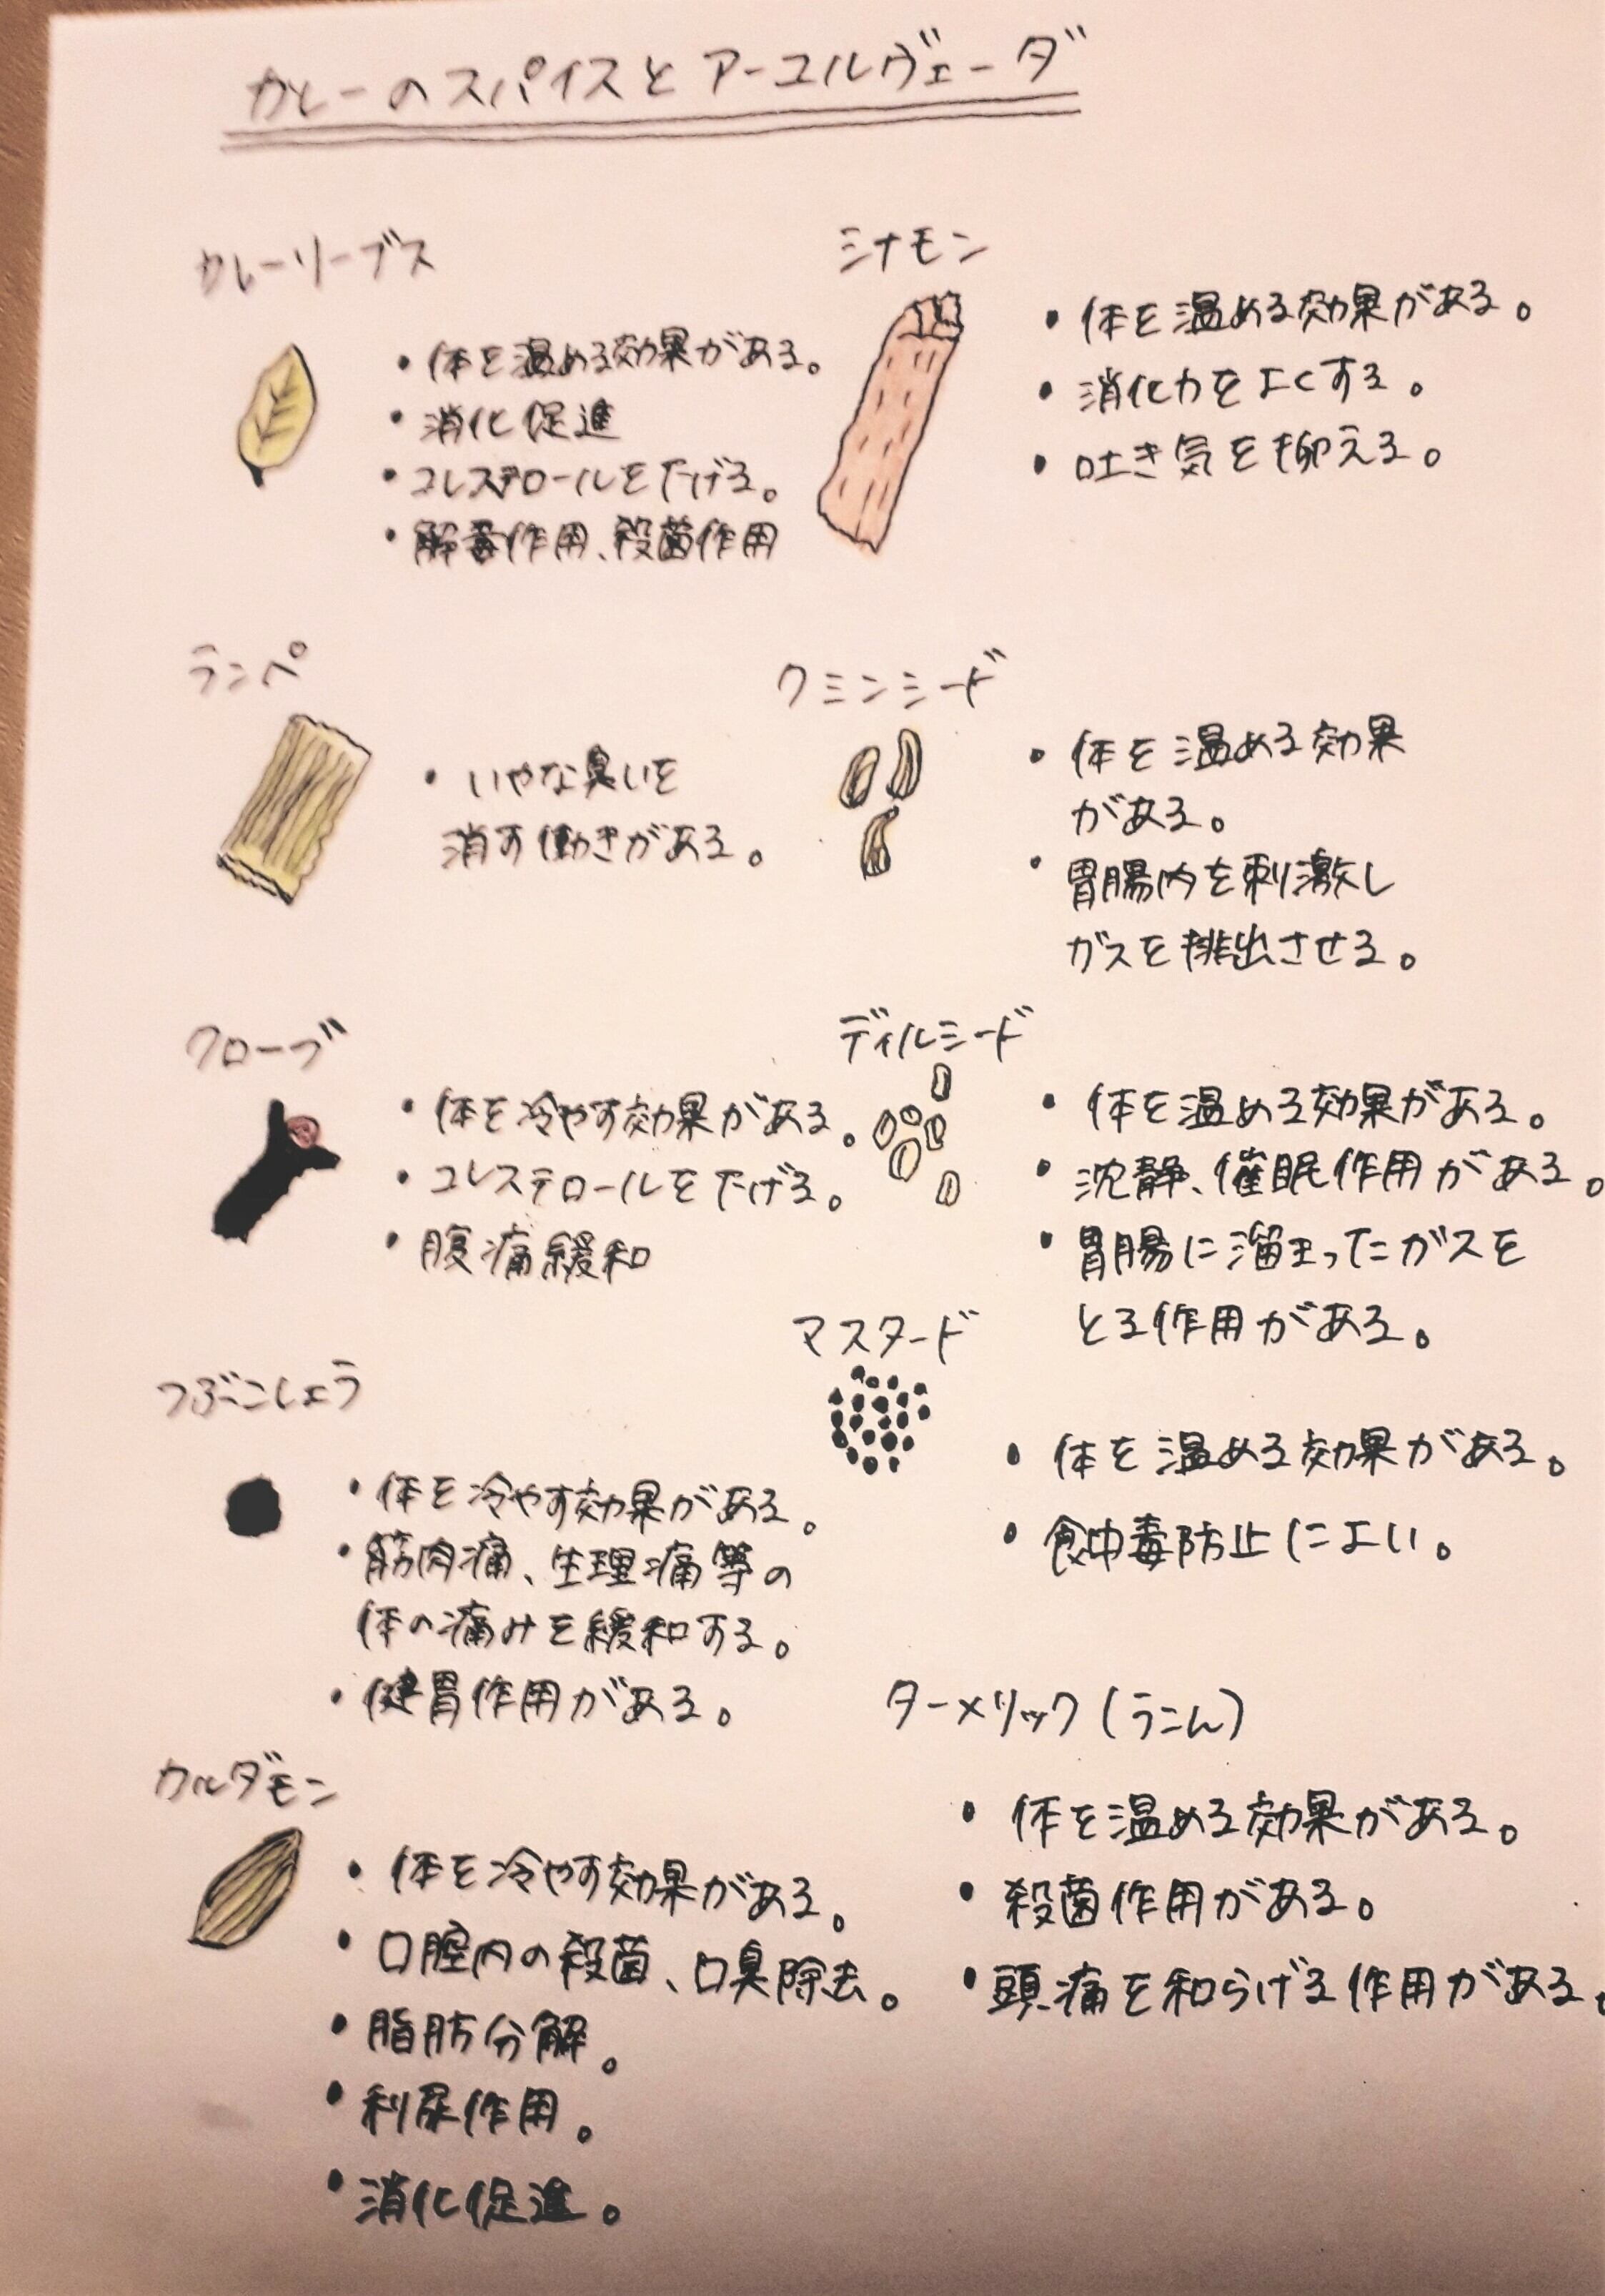 カレーのスパイスとアーユルヴェーダ
カレーリーブス
・体を温める効果がある。
・消化促進
・コレステロールを下げる。
・解毒作用、殺菌作用
シナモン
・体を温める効果がある。
・消化力をよくする。
・吐き気を抑える。
ランペ
・いやな臭いを
消す働きがある。
クミンシード
・体を温める効果
がある。
・胃腸内を刺激し
ガスを排出させる。
クローブ
・体を冷やす効果がある。
・コレステロールを下げる。
・腹痛緩和
ディルシード
・体を温める効果がある。
・沈静、催眠作用がある。
・胃腸に溜まったガスを
とる作用がある。
つぶこしょう
・体を冷やす効果がある。
・筋肉痛、生理痛等の
体の痛みを緩和する。
・健胃作用がある。
マスタード
・体を温める効果がある。
・食中毒防止によい。
カルダモン
・体を冷やす効果がある。
・口腔内の殺菌、口臭除去。
・脂肪分解。
・利尿作用。
・消化促進。
ターメリック(うこん)
・体を温める効果がある。
・殺菌作用がある。
・頭痛を和らげる作用がある。